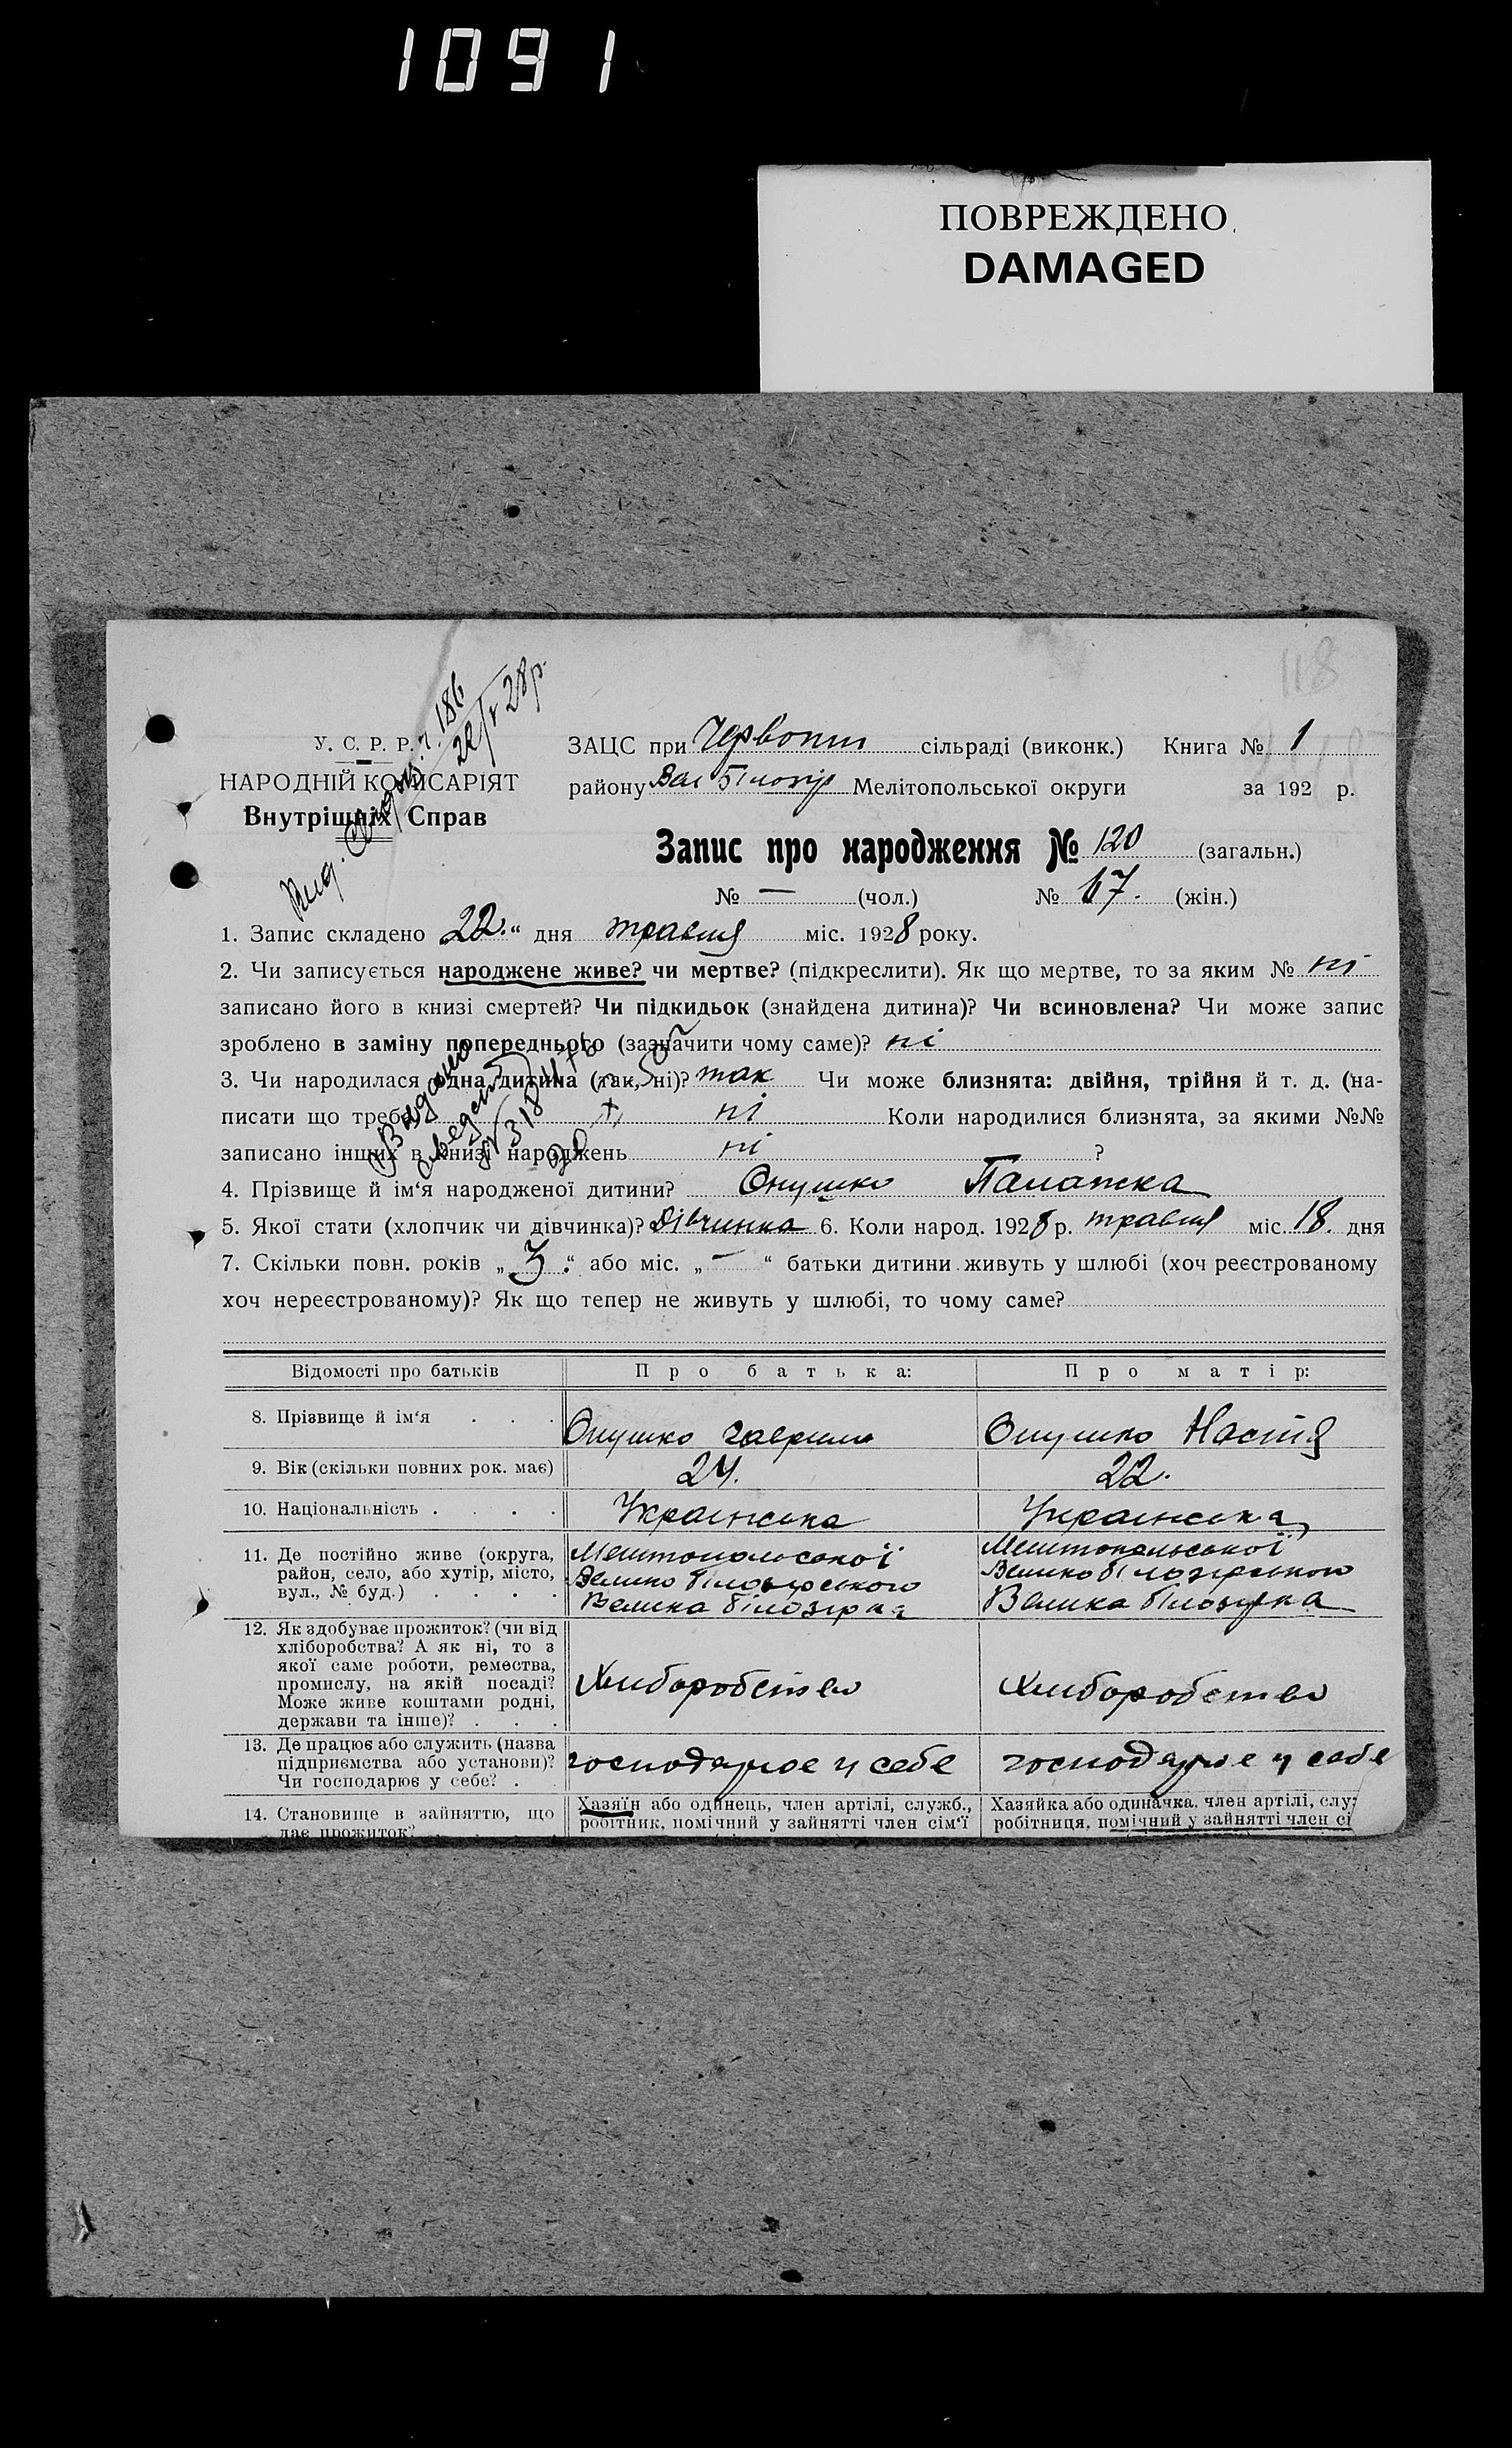 1091
ПОВРЕЖДЕНО
DAMAGED
118
У. С. Р. Р.
НАРОДНІЙ КОМІСАРІЯТ
Внутрішніх Справ
186
22/V 28р.
ЗАЦС при Червоній сільраді (виконк.) Книга № 1
району Вел Білозір Мелітопольської округи за 192 р.
Запис про народження № 120 (загальн.)
№ — (чол.) № 67. (жін.)
1. Запис складено 22.“ дня травня міс. 1928 року.
2. Чи записується народжене живе? чи мертве? (підкреслити). Як що мертве, то за яким № ні
записано його в книзі смертей? Чи підкидьок (знайдена дитина)? Чи всиновлена? Чи може запис
зроблено в заміну попереднього (зазначити чому саме)? ні
3. Чи народилася одна дитина (так, ні)? так Чи може близнята: двійня, трійня й т. д. (на-
писати що треба) ні Коли народилися близнята, за якими №№
записано інших в книзі народжень ні ?
Видано
4. Прізвище й ім‘я народженої дитини? Онушко Палажка
5. Якої стати (хлопчик чи дівчинка)? Дівчинка 6. Коли народ. 1928 р. травня міс. 18. дня
7. Скільки повн. років „ 3 .“ або міс. „ — “ батьки дитини живуть у шлюбі (хоч реєстрованому
хоч нереєстрованому)? Як що тепер не живуть у шлюбі, то чому саме?
Відомості про батьків Про батька: Про матір:
8. Прізвище й ім‘я . . . Онушко Гаврило Онушко Настя
9. Вік (скільки повних рок. має) 24. 22.
10. Національність . . . . Українська Українська
11. Де постійно живе (округа, Мелітопольської Мелітопольської
район, село, або хутір, місто, Велико Білозірського Велико Білозірського
вул., № буд.) . . . . Велика Білозірка Велика Білозірка
12. Як здобуває прожиток? (чи від
хліборобства? А як ні, то з
якої саме роботи, ремества,
промислу, на якій посаді? Хліборобство Хліборобство
Може живе коштами родні,
держави та інше)? . . .
13. Де працює або служить (назва
підприємства або установи)? господарює у себе господарює у себе
Чи господарює у себе? .
14. Становище в зайняттю, що Хазяїн або одинець, член артілі, служб., Хазяйка або одиначка, член артілі, слу
дає прожиток? робітник, помічний у зайнятті член сім‘ї робітниця, помічний у зайнятті член сі